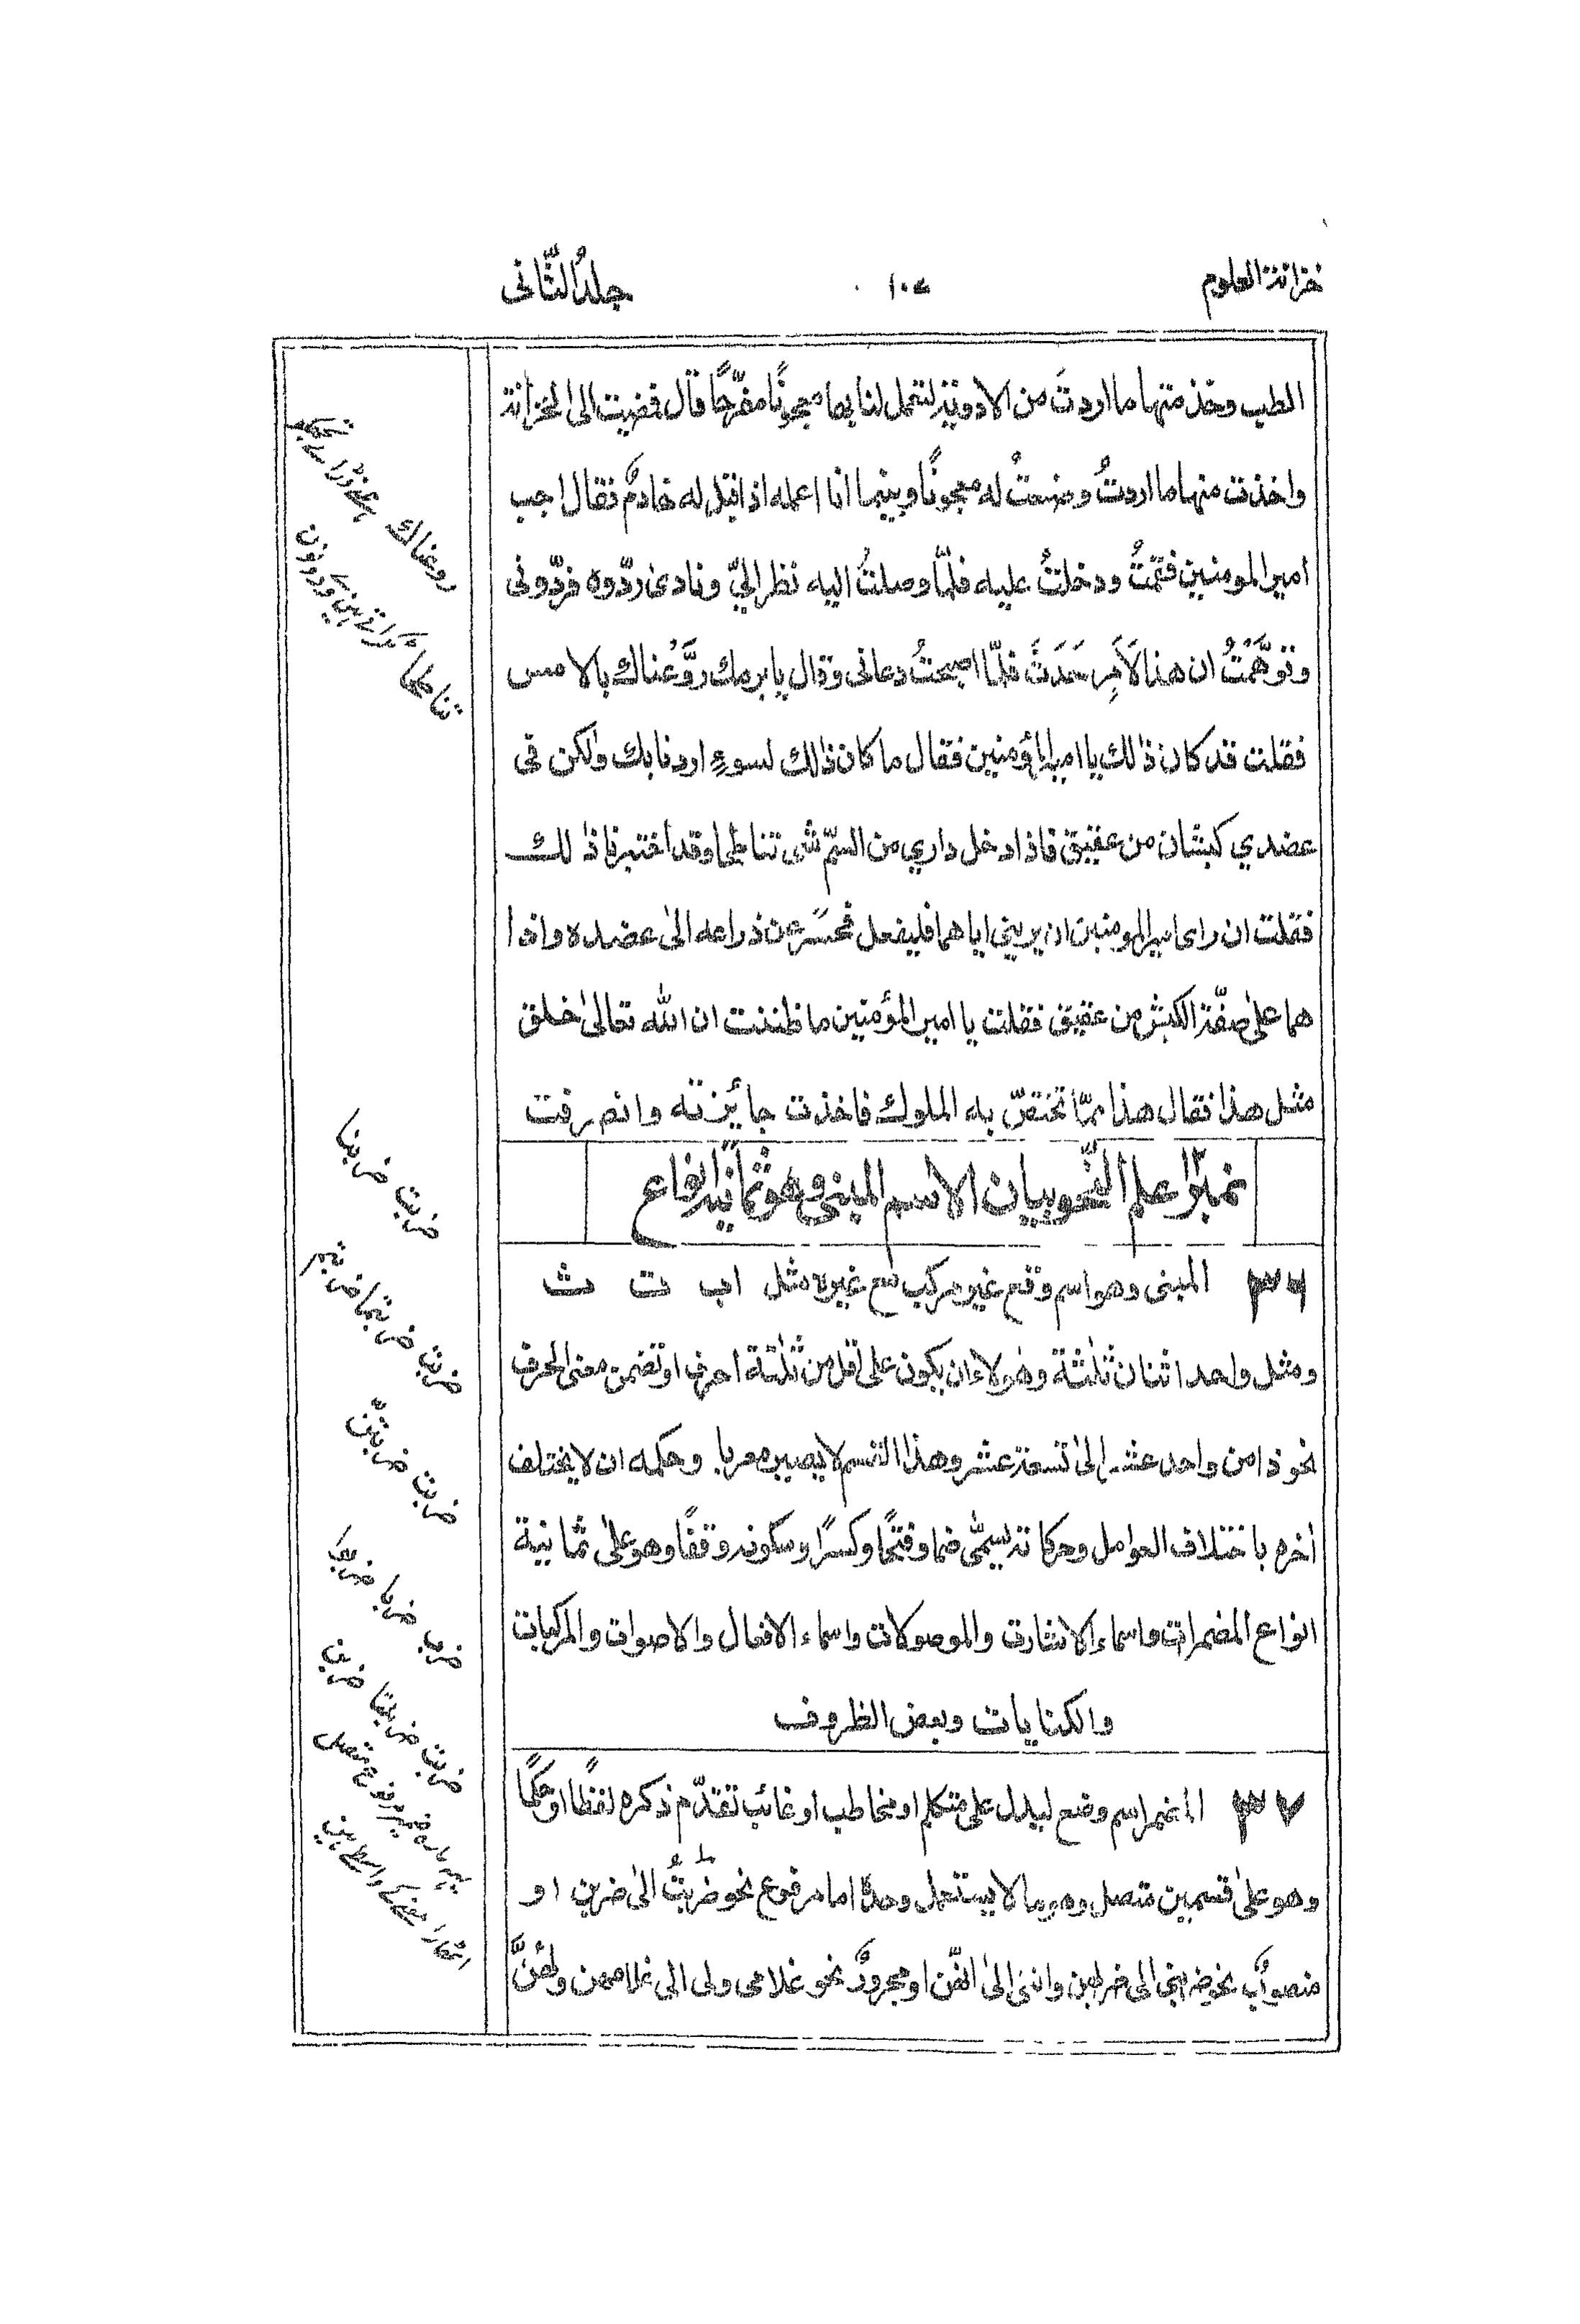 خزانة العلوم
١٠٧
جلدُ الثّانی
الطب وخذ منها ما اردتَ من الادویة لتعمل لنا بها معجونًا مفرّحًا قال فمضیت الی الخزانة
واخذت منها ما اردتُ وضعتُ له معجونًا وبینما انا اعمله اذ اقبل له خادمٌ فقال اجب
امیر المومنین فقمتُ ودخلتُ علیه فلمّا وصلتُ الیه نظر الیّ ونادیٰ ردّوه فردّونی
وتوهَّمْتُ ان هذا لَاَمر حَدَثَ فلمّا اصبحتُ دعانی وقال یا برمك روَّعْناك بالامس
فقلت قد كان ذٰلك یا امیر المؤمنین فقال ما كان ذٰلك لسوءٍ اردنا بك ولٰكن فی
عضدی كبشان من عقیق فاذا دخل داری من السمّ شی تناطحا وقد اختبرنا ذٰلك
فقلت ان رای امیر المومنین ان یرینی ایاهما فلیفعل فحسَر عن ذراعه الیٰ عضده واذا
هما علیٰ صفّة الكبش من عقیق فقلت یا امیر المؤمنین ما ظننت ان الله تعالیٰ خلق
مثل هذا فقال هذا ممّا تختصّ به الملوك فاخذت جائیزته وانصرفت
علم النَّحو بیان الاسم المبنی وهو ثمانیة انواع
٣٦ المبنی وهو اسم وقع غیر مركب مع غیره مثل ا ب ت ث
ومثل واحد اثنان ثلٰثة وهٰولاء ان یكون علی اقل من ثلٰثة احرف او تضمن معنی الحرف
نحو ذا من واحد عشر الیٰ تسعة عشر وهذا القسم لا یصیر معربا وحكمه ان لا یختلف
اٰخره باختلاف العوامل وحركاته یسمّٰی ضما وفتحًا وكسرًا وسكونه وقفًا وهو علیٰ ثمانیة
انواع المضمرات واسماء الاشارت والموصولات واسماء الافعال والاصوات والمركبات
والكنایات وبعض الظروف
٣٧ المضمر اسم وضع لیدل علی متكلم او مخاطب او غائب تقدّم ذكره لفظًا او حكمًا
وهو علیٰ قسمین متصل وهو ما لا یستعمل وحدهٗ اما مرفوع نحو ضربتُ الیٰ ضربن او
منصوبٌ نحو ضربنی الی ضربهن واننی الیٰ انّهن او مجرورٌ نحو غلامی ولی الی غلامهن ولهُنَّ
روعناك
تناطحا
ضربت ضربنا
ضربت ضربتما ضربتم
ضربت ضربتنّ
ضرب ضربا ضربوا
ضربت ضربتا ضربن